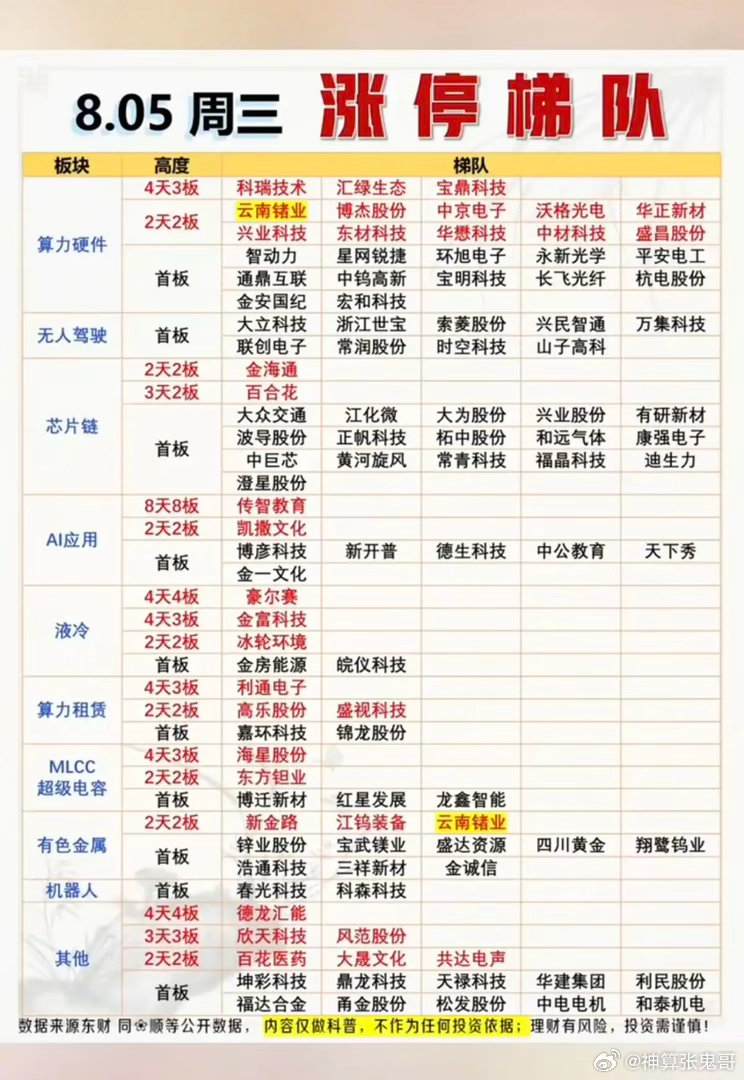 8.05 周三 涨停梯队
板块 高度 梯队
算力硬件
4天3板 科瑞技术 汇绿生态 宝鼎科技
2天2板 云南锗业 博杰股份 中京电子 沃格光电 华正新材
兴业科技 东材科技 华懋科技 中材科技 盛昌股份
首板 智动力 星网锐捷 环旭电子 永新光学 平安电工
通鼎互联 中钨高新 宝明科技 长飞光纤 杭电股份
金安国纪 宏和科技
无人驾驶
首板 大立科技 浙江世宝 索菱股份 兴民智通 万集科技
联创电子 常润股份 时空科技 山子高科
芯片链
2天2板 金海通
3天2板 百合花
首板 大众交通 江化微 大为股份 兴业股份 有研新材
波导股份 正帆科技 柘中股份 和远气体 康强电子
中巨芯 黄河旋风 常青科技 福晶科技 迪生力
澄星股份
AI应用
8天8板 传智教育
2天2板 凯撒文化
首板 博彦科技 新开普 德生科技 中公教育 天下秀
金一文化
液冷
4天4板 豪尔赛
4天3板 金富科技
2天2板 冰轮环境
首板 金房能源 皖仪科技
算力租赁
4天3板 利通电子
2天2板 高乐股份 盛视科技
首板 嘉环科技 锦龙股份
MLCC
超级电容
4天3板 海星股份
2天2板 东方钽业
首板 博迁新材 红星发展 龙鑫智能
有色金属
2天2板 新金路 江钨装备 云南锗业
首板 锌业股份 宝武镁业 盛达资源 四川黄金 翔鹭钨业
浩通科技 三祥新材 金诚信
机器人
首板 春光科技 科森科技
其他
4天4板 德龙汇能
3天3板 欣天科技 风范股份
2天2板 百花医药 大晟文化 共达电声
首板 坤彩科技 鼎龙科技 天禄科技 华建集团 利民股份
福达合金 甬金股份 松发股份 中电电机 和泰机电
数据来源东财 同❀顺等公开数据, 内容仅做科普,不作为任何投资依据; 理财有风险,投资需谨慎!
@神算张鬼哥